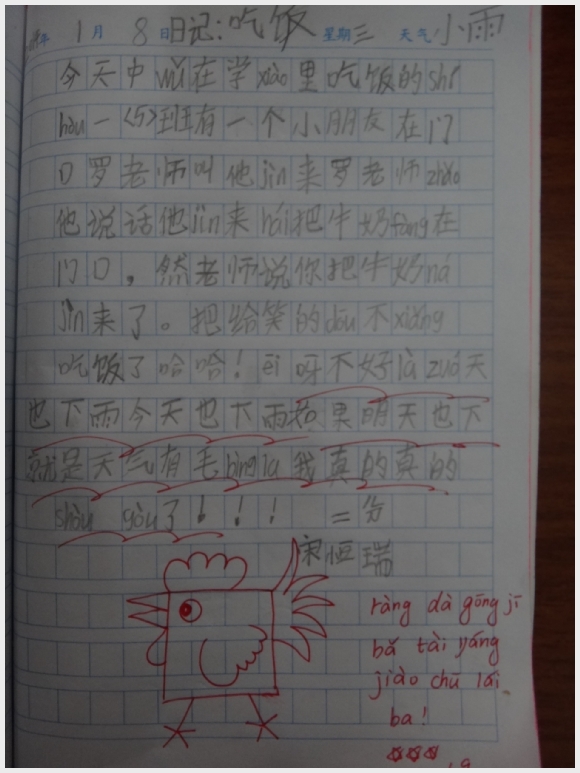 年 1月 8日 日记:吃饭 星期三 天气 小雨
今天中wǔ在学xiào里吃饭的shí
hòu一〈5〉班有一个小朋友在门
口罗老师叫他jìn来罗老师zhǎo
他说话他jìn来hái把牛奶fàng在
门口，然老师说你把牛奶ná
jìn来了。把给笑的dōu不xiǎng
吃饭了哈哈！ēi呀不好là zuó天
也下雨今天也下雨如果明天也下
就是天气有毛bìng la我真的真的
shòu gòu了！！！ 二分
宋恒瑞
ràng dà gōng jī
bǎ tài yáng
jiào chū lái
ba!
1.9